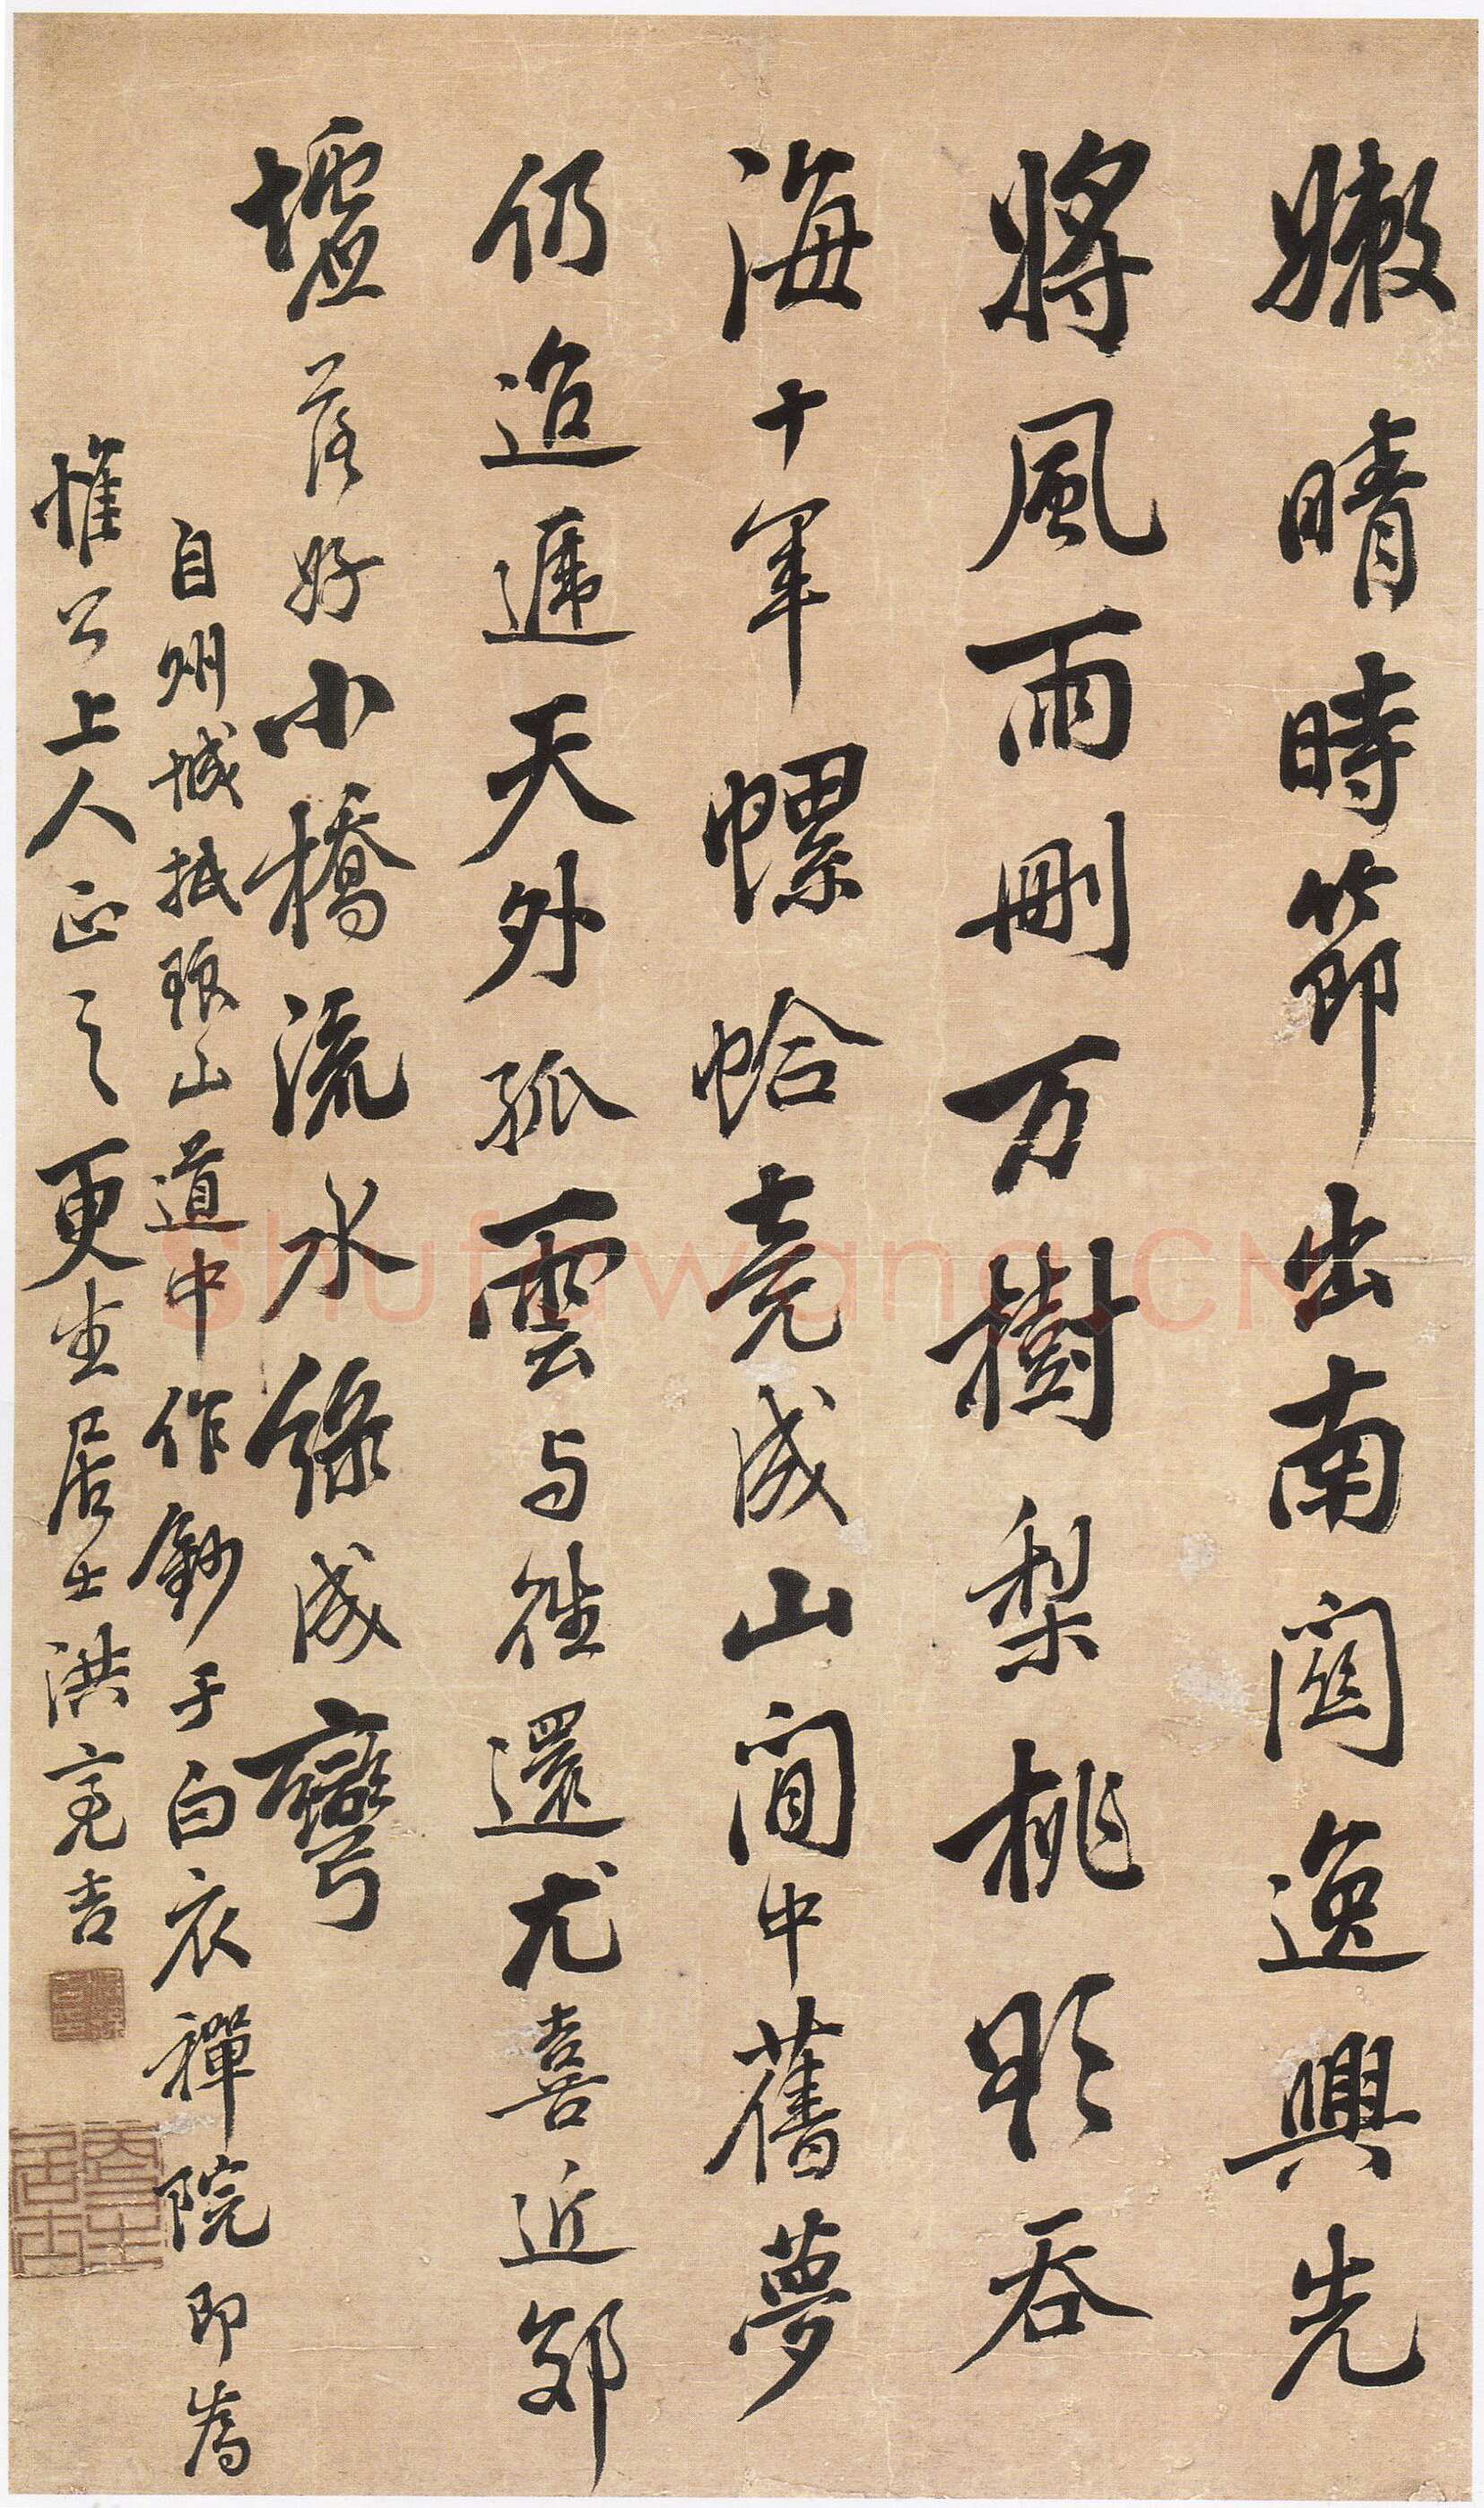 嫩晴時節出南關逸興先
將風雨刪万樹梨桃吞
海十年螺蛤竟成山間中舊夢
仍迢遞天外孤雲与往還尤喜近郊
墟落好小橋流水綠成彎
自州城抵琅山道中作鈔于白衣禪院即為
惟公上人正之更生居士洪亮吉
更生居士
Shufawang.CN